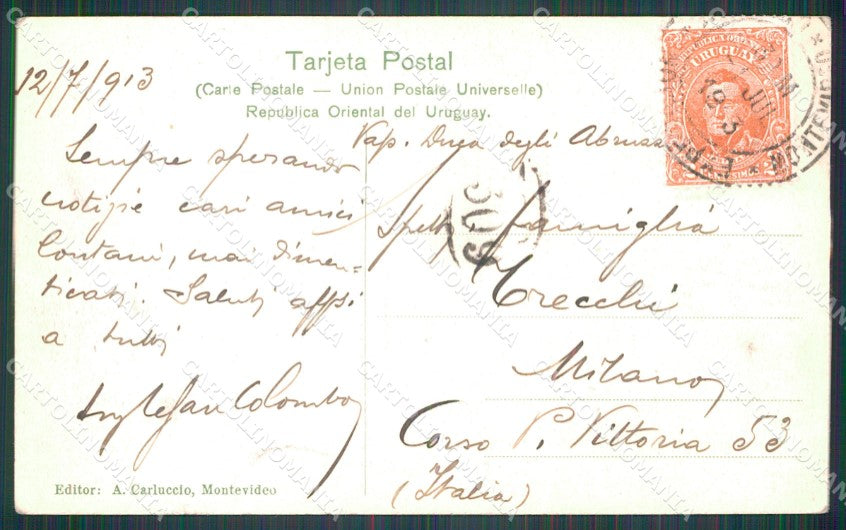 Tarjeta Postal
(Carte Postale — Union Postale Universelle)
Republica Oriental del Uruguay.
12/7/913
Vap. Duca degli Abruzzi
Sempre sperando
notizie cari amici
lontani, mai dimen=
ticati. Saluti affsi
a tutti
Colombo
Spett. Famiglia
Crecchi
Milano
Corso P. Vittoria 53
(Italia)
Editor: A. Carluccio, Montevideo
REPUBLICA ORIENTAL
URUGUAY
JUL
19 3
MONTEVIDEO
CARTOLINOMANIA